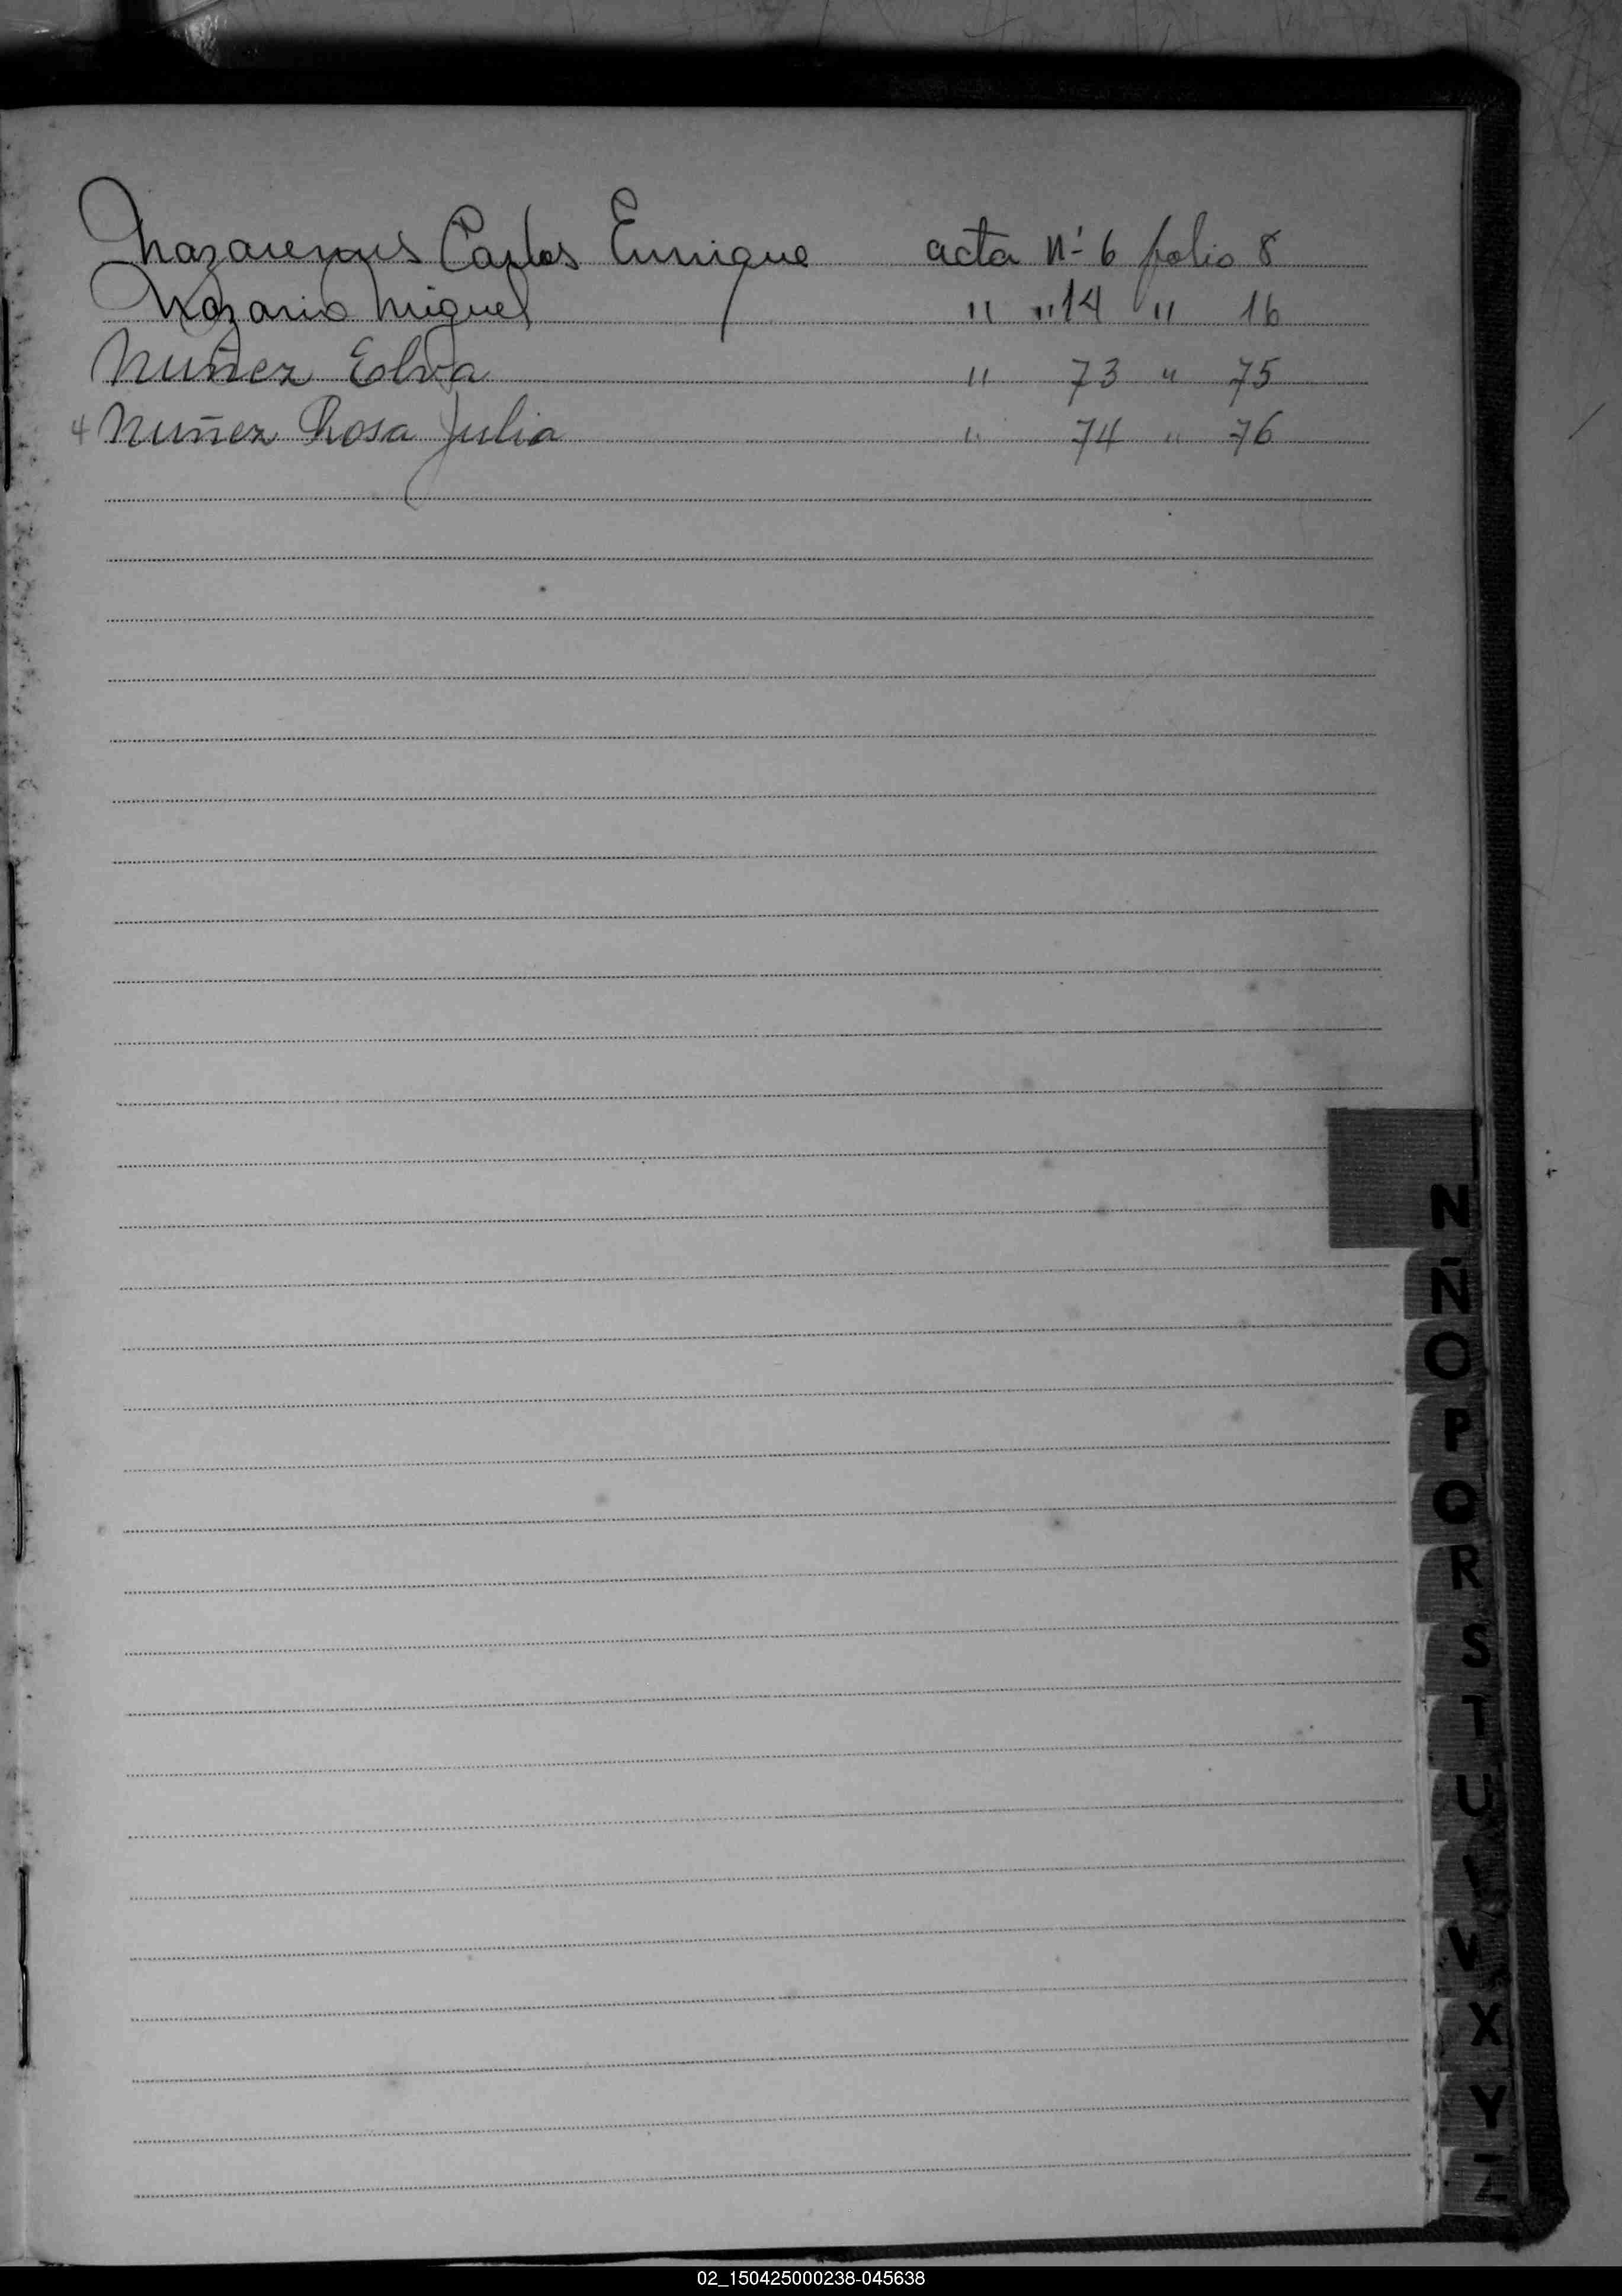 Nazarenus Carlos Enrrique acta Nº 6 folio 8
Nazario Miguel " " 14 " 16
Nuñez Elva " 73 " 75
4 Nuñez Rosa Julia " 74 " 76
N
Ñ
O
P
Q
R
S
T
U
V
X
Y
Z
02_150425000238-045638